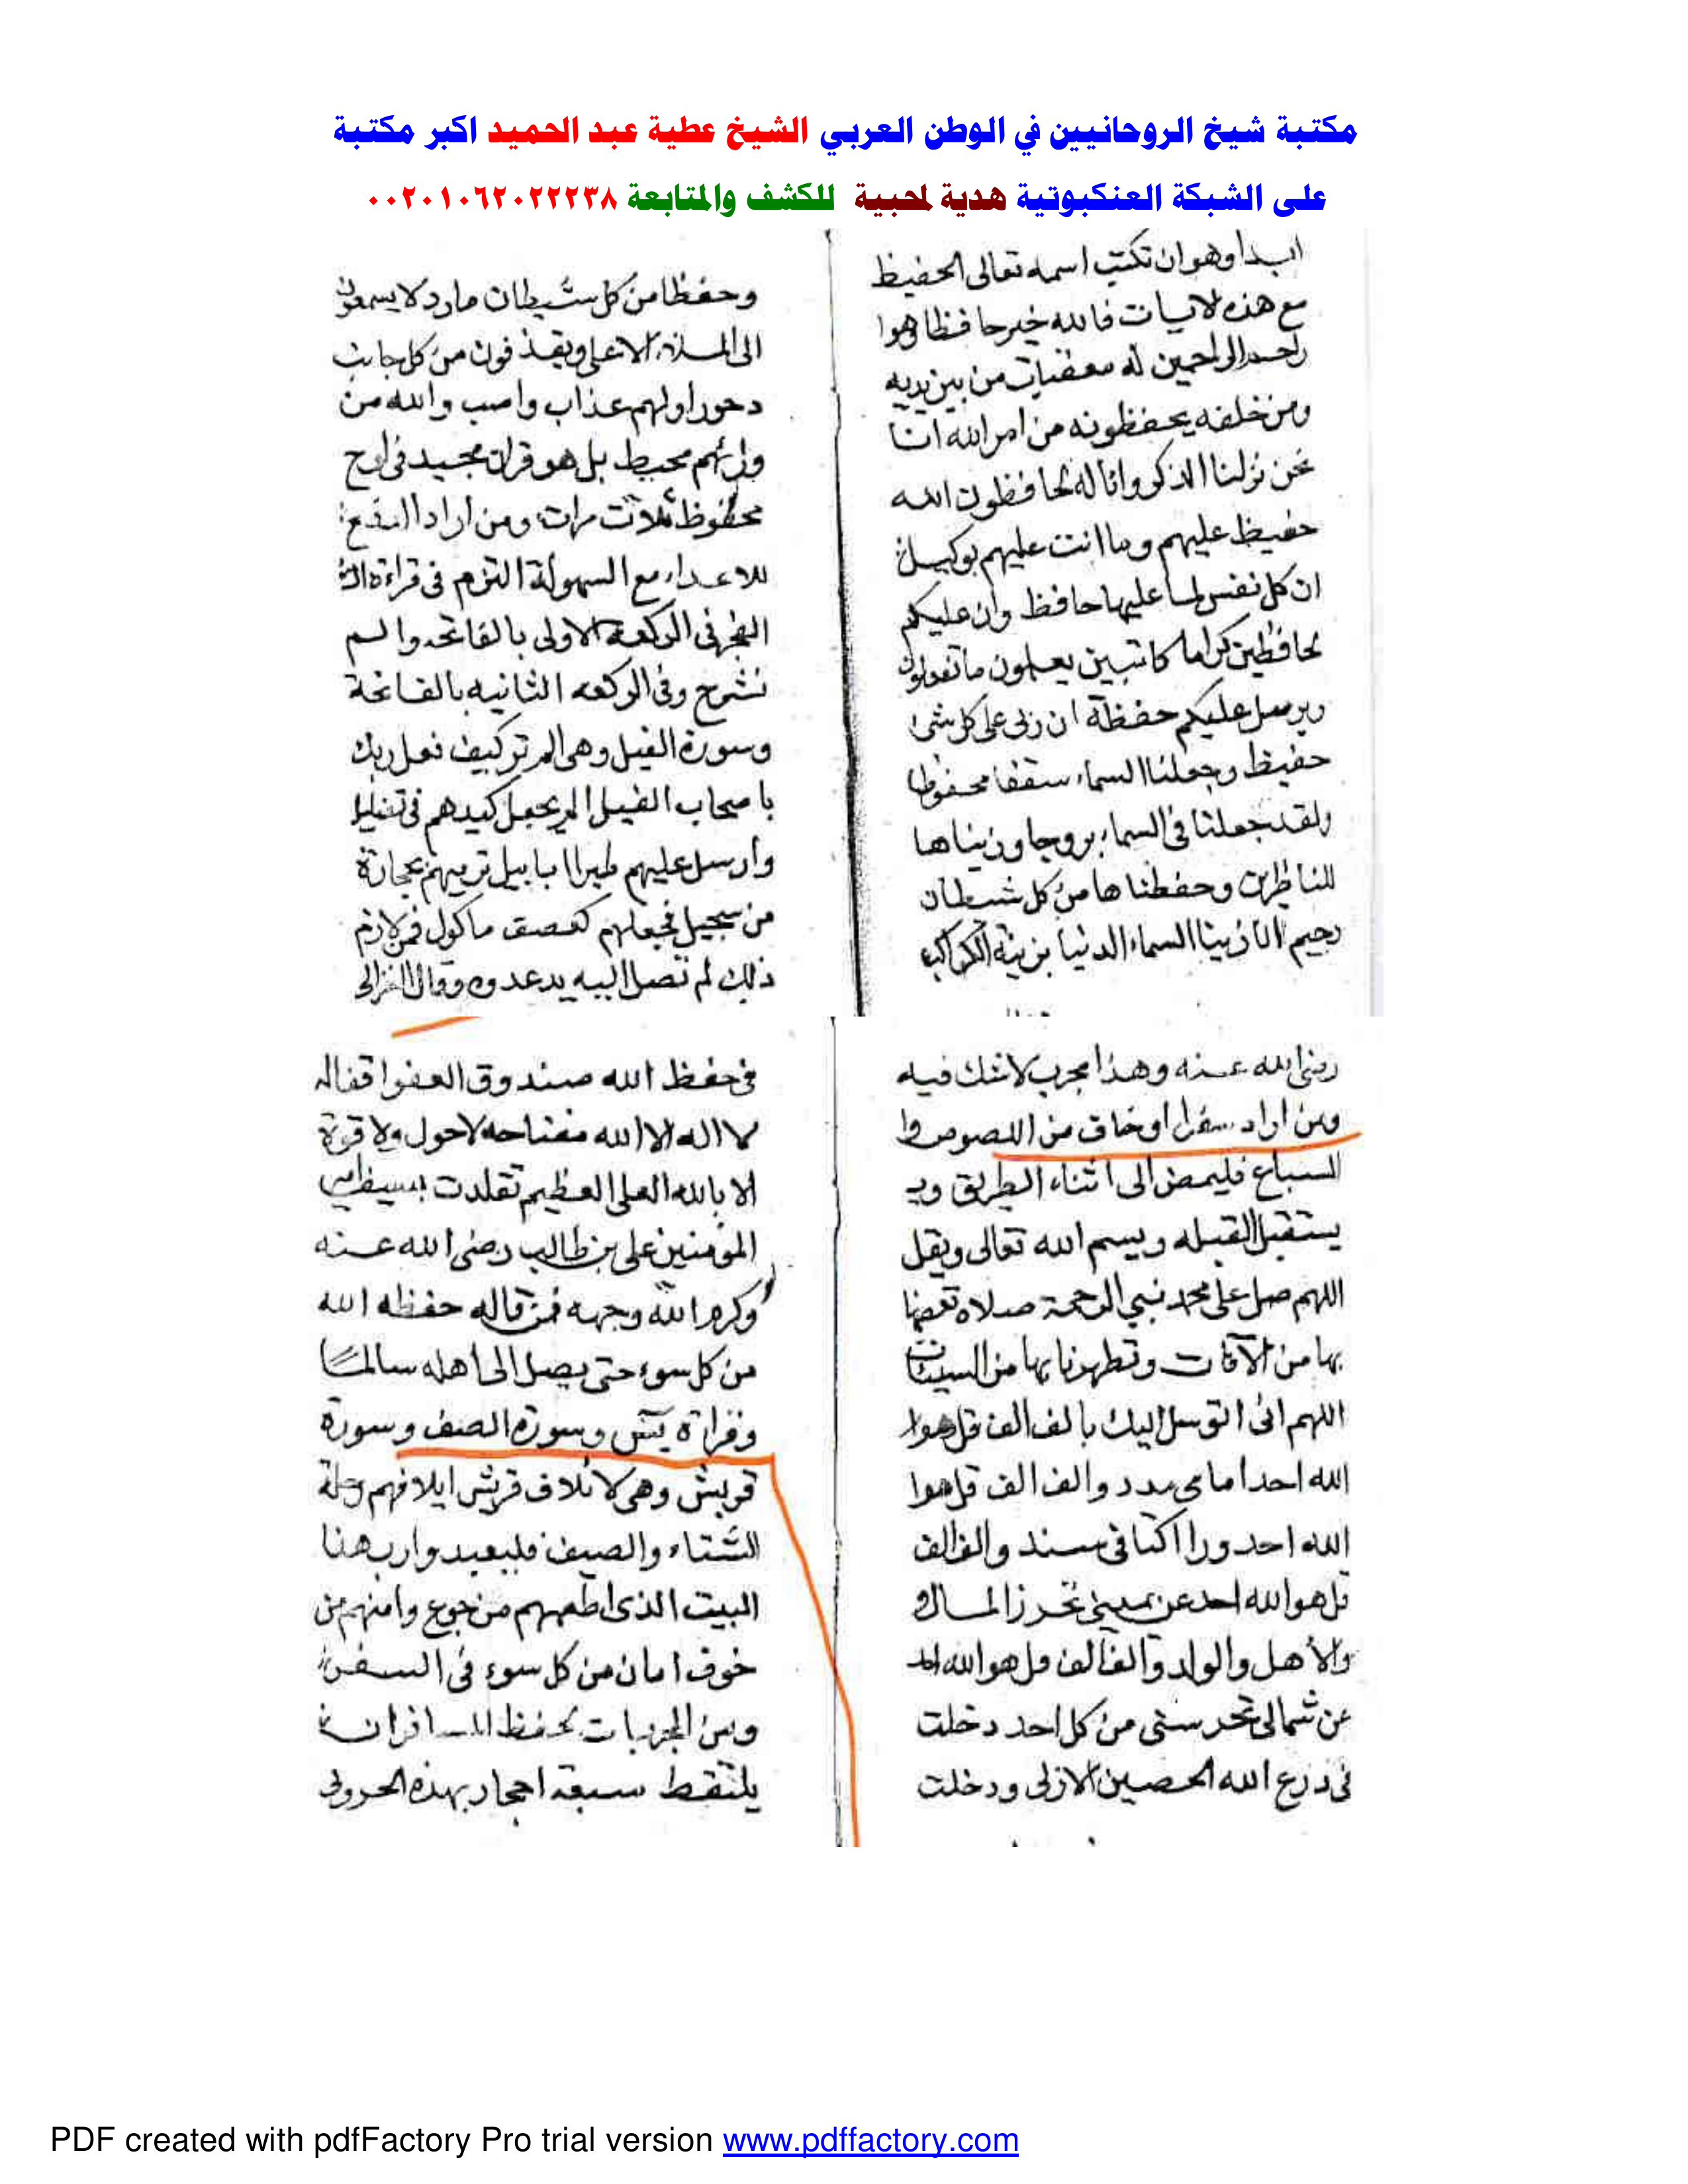 مكتبة شيخ الروحانيين في الوطن العربي الشيخ عطية عبد الحميد اكبر مكتبة
على الشبكة العنكبوتية هدية لمحبية للكشف والمتابعة ٠٠٢٠١٠٦٢٠٢٢٢٣٨
ابدا وهو ان تكتب اسمه تعالى الحفيظ
مع هذه لايات فالله خير حافظا وهوا
راحم الراحمين له معقبات من بين يديه
ومن خلفه يحفظونه من امر الله انا
نحن نزلنا الذكر وانا له لحافظون الله
حفيظ عليهم وما انت عليهم بوكيل
ان كل نفس لما عليها حافظ وان عليكم
لحافظين كراما كاتبين يعلمون ما تفعلون
ويرسل عليكم حفظة ان ربى على كل شئ
حفيظ وجعلنا السماء سقفا محفوظا
ولقد جعلنا فى السماء بروجا وزيناها
للناظرين وحفظنا ها من كل شيطان
رجيم انا زينا السماء الدنيا بزينة الكواكب
وحفظا من كل شيطان مارد لا يسمعون
الى الملاء الاعلى ويقذفون من كل جانب
دحورا ولهم عذاب واصب والله من
ورائهم محيط بل هو قران مجيد فى لوح
محفوظ ثلاث مرات ومن اراد الدفع
للاعداء مع السهولة التزم فى قراءة
الفجر فى الركعة الاولى بالفاتحه والم
نشرح وفى الركعه الثانيه بالفاتحة
وسورة الفيل وهى الم تر كيف فعل ربك
باصحاب الفيل الم يجعل كيدهم فى تضليل
وارسل عليهم طيرا ابابيل ترميهم بحجارة
من سجيل فجعلهم كعصف ماكول فمن لازم
ذلك لم تصل اليه يد عدوه وقال الغزالى
رضى الله عنه وهذا مجرب لا شك فيه
ومن اراد سفرا او خاف من اللصوص وا
السباع فليمض الى اثناء الطريق وي
يستقبل القبله ويسم الله تعالى ويقل
اللهم صل على محمد نبي الرحمة صلاه تعصمنا
بها من الآفات وتطهرنا بها من السيئات
اللهم انى اتوسل اليك بالف الف قل هوا
الله احد امامى مدد والف الف قل هوا
الله احد ورا اكتافى سند والف الف
قل هو الله احد عن يمينى تحرز المال
والأهل والولد والف الف قل هو الله احد
عن شمالى تحرسنى من كل احد دخلت
فى درع الله الحصين الازلى ودخلت
فى حفظ الله صندوق العفو اقفاله
لا اله الا الله مفتاحه لا حول ولا قوة
الا بالله العلى العظيم تقلدت بسيف امير
المؤمنين على بن طالب رضى الله عنه
وكرم الله وجهه فمن قاله حفظه الله
من كل سوء حتى يصل الى اهله سالما
وقراة يس وسورة الصف وسورة
قريش وهى لا ئلاف قريش ايلافهم رحلة
الشتاء والصيف فليعبدوا رب هذا
البيت الذى اطعمهم من جوع وامنهم من
خوف امان من كل سوء فى السفر
ومن المجربات لحفظ المسافر ان
يلتقط سبعة احجار بهذه الحروف
PDF created with pdfFactory Pro trial version www.pdffactory.com